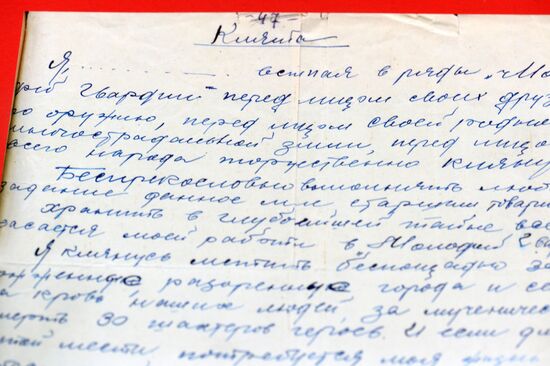 - 47 -
Клятва
Я, .......... вступая в ряды "Мо
дой Гвардии" перед лицом своих друз
по оружию, перед лицом своей родно
многострадальной земли, перед лицо
всего народа торжественно клянус
Беспрекословно выполнять любо
задание данное мне старшим товари
хранить в глубочайшей тайне все
касается моей работы в "Молодой Гв
Я клянусь мстить беспощадно за
женные разоренные города и се
а кровь наших людей, за мученичес
смерть 30 шахтеров героев. И если д
этой мести потребуется моя жизнь